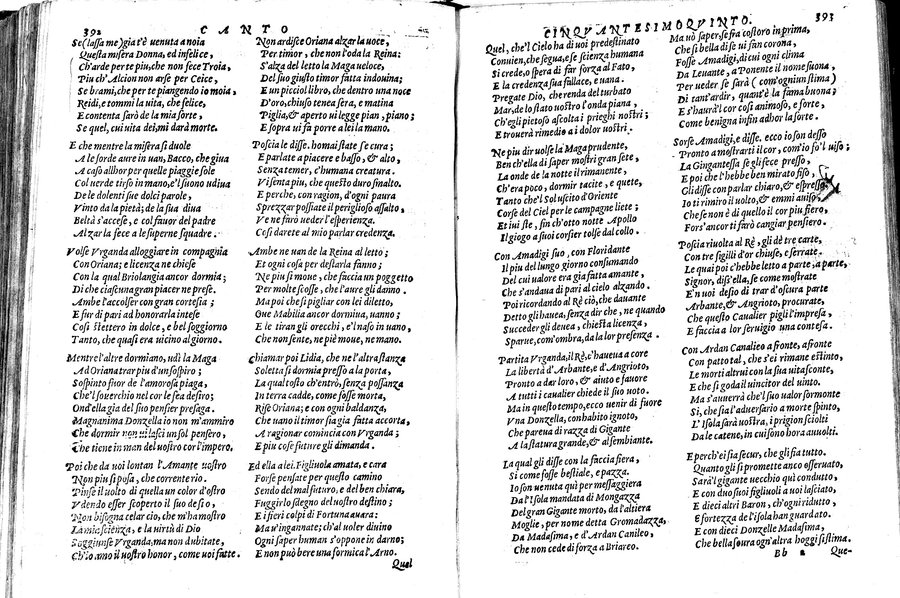 392 CANTO
Se (lassa me) gia t'è uenuta a noia
Questa misera Donna, ed infelice,
Ch'arde per te piu, che non fece Troia,
Piu ch'Alcion non arse per Ceice,
Se brami, che per te piangendo io moia,
Reidi, e tommi la uita, che felice,
E contenta sarò de la mia sorte,
Se quel, cui uita dei, mi darà morte.
E che mentre la misera si duole
A le sorde aure in uan, Bacco, che giua
A caso allhor per quelle piaggie sole
Col uerde tirso in mano, e'l suono udiua
De le dolenti sue dolci parole,
Vinto da la pietà; de la sua diua
Beltà s'accese, e col fauor del padre
Alzar la fece a le superne squadre.
Volse Vrganda alloggiare in compagnia
Con Oriana; e licenza ne chiese
Con la qual Briolangia ancor dormia;
Di che ciascuna gran piacer ne prese.
Ambe l'accolser con gran cortesia;
E fur di pari ad honorarla intese
Cosi stettero in dolce, e bel soggiorno
Tanto, che quasi era uicino al giorno.
Mentre l'altre dormiano, udì la Maga
Ad Oriana trar piu d'un sospiro;
Sospinto fuor de l'amorosa piaga,
Che'l souerchio nel cor le fea desiro;
Ond'ella gia del suo pensier presaga.
Magnanima Donzella io non m'ammiro
Che dormir non ui lasci un sol pensero,
Che tiene in man del uostro cor l'impero.
Poi che da uoi lontan l'Amante uostro
Non piu si posa, che corrente rio.
Pinse il uolto di quella un color d'ostro
Vdendo esser scoperto il suo desio,
Non bisogna celar ciò, che m'ha mostro
La mia scienza, e la uirtù di Dio
Soggiunse Vrganda; ma non dubitate,
Ch'io amo il uostro honor, come uoi fatte.
Non ardisce Oriana alzar la uoce,
Per timor, che non l'oda la Reina:
S'alza del letto la Maga ueloce,
Del suo giusto timor fatta indouina;
E un picciol libro, che dentro una noce
D'oro, chiuso tenea sera, e matina
Piglia, & aperto ui legge pian, piano;
E sopra ui fa porre a lei la mano.
Poscia le disse. homai state se cura;
E parlate a piacere e basso, & alto,
Senza temer, c'humana creatura.
Vi senta piu, che questo duro smalto.
E perche, con ragion, d'ogni paura
Sprezzar possiate il periglioso assalto,
Ve ne farò ueder l'esperienza.
Cosi darete al mio parlar credenza.
Ambe ne uan de la Reina al letto;
Et ogni cosa per destarla fanno;
Ne piu si moue, che faccia un poggetto
Per molte scosse, che l'aure gli danno.
Ma poi che si pigliar con lei diletto,
Oue Mabilia ancor dormiua, uanno;
E le tiran gli orecchi, e'l naso in uano,
Che non sente, ne piè moue, ne mano.
Chiamar poi Lidia, che ne l'altra stanza
Soletta si dormia presso a la porta,
La qual tosto ch'entrò, senza possanza
In terra cadde, come fosse morta,
Rise Oriana; e con ogni baldanza,
Che uano il timor sia gia fatta accorta,
A ragionar comincia con Vrganda;
E piu cose future gli dimanda.
Ed ella a lei. Figliuola amata, e cara
Forse pensate per questo camino
Sendo del mal futuro, e del ben chiara,
Fuggir lo sdegno del uostro destino;
E i fieri colpi di Fortuna auara;
Ma u'ingannate; ch'al uoler diuino
Ogni saper human s'oppone in darno;
E non può bere una formica l'Arno.
Quel
CINQVANTESIMOQVINTO. 393
Quel, che'l Cielo ha di uoi predestinato
Conuien, che segua, e se scienza humana
Si crede, o spera di far forza al Fato,
E la credenza sua fallace, e uana.
Pregate Dio, che renda del turbato
Mar, de lo stato uostro l'onda piana,
Ch'egli pietoso ascolta i prieghi nostri;
E trouerà rimedio a i dolor uostri.
Ne piu dir uolse la Maga prudente,
Ben ch'ella di saper mostri gran sete,
La onde de la notte il rimanente,
Ch'era poco, dormir tacite, e quete,
Tanto che'l Sol uscito d'Oriente
Corse del Ciel per le campagne liete;
Et iui ste, fin ch'otto notte Apollo
Il giogo a suoi corsier tolse dal collo.
Con Amadigi suo, con Floridante
Il piu del lungo giorno consumando
Del cui ualore era gia fatta amante,
Che s'andaua di pari al cielo alzando.
Poi ricordando al Rè ciò, che dauante
Detto gli hauea, senza dir che, ne quando
Succeder gli deuea, chiesta licenza,
Sparue, com'ombra, da la lor presenza.
Partita Vrganda, il Rè, c'haueua a core
La libertà d'Arbante, e d'Angrioto,
Pronto a dar loro, & aiuto e fauore
A tutti i caualier chiede il suo uoto.
Ma in questo tempo, ecco uenir di fuore
Vna Donzella, con habito ignoto,
Che pareua di razza di Gigante
A la statura grande, & al sembiante.
La qual gli disse con la faccia fiera,
Si come fosse bestiale, e pazza.
Io son uenuta quì per messaggiera
Da l'Isola mandata di Mongazza
Del gran Gigante morto, da l'altiera
Moglie, per nome detta Gromadazza,
Da Madasima, e d'Ardan Canileo,
Che non cede di forza a Briareo.
Ma uò saper se fia costoro in prima,
Che si bella disse ui fan corona,
Fosse Amadigi, di cui ogni clima
Da Leuante, a Ponente il nome suona,
Per ueder se sarà (com'ogniun stima)
Di tant'ardir, quant'è la fama buona;
E s'haurà'l cor cosi animoso, e forte,
Come benigna in fin adhor la sorte.
Sorse Amadigi, e disse. ecco io son desso
Pronto a mostrarti il cor, com'io fo'l uiso;
La Gigantessa se gli fece presso,
E poi che l'hebbe ben mirato fiso,
Gli disse con parlar chiaro, & espresso,
Io ti rimiro il uolto, & emmi auiso,
Che se non è di quello il cor piu fiero,
Fors'ancor ti farò cangiar pensiero.
Poscia riuolta al Rè, gli dè tre carte,
Con tre sigilli d'or chiuse, e serrate.
Le quai poi c'hebbe letto a parte, a parte,
Signor, diss'ella, se come mostrate
E'n uoi desio di trar d'oscura parte
Arbante, & Angrioto, procurate,
Che questo Caualier pigli l'impresa,
E faccia a lor seruigio una contesa.
Con Ardan Canalieo a fronte, a fronte
Con patto tal, che s'ei rimane estinto,
Le morti altrui con la sua uita sconte,
E che si goda il uincitor del uinto.
Ma s'auuerrà che'l suo ualor sormonte
Si, che sia l'aduersario a morte spinto,
L'Isola sarà uostra, i prigion sciolti
Da le catene, in cui sono hora auuolti.
E perch'ei sia secur, che gli sia tutto.
Quanto gli si promette anco osseruato,
Sarà'l gigante uecchio quì condutto,
E con duo suoi figliuoli a uoi lasciato,
E dieci altri Baron, ch'ogni ridutto,
E fortezza de l'Isola han guardato.
E con dieci Donzelle Madasima,
Che bella soura ogn'altra hoggi si stima.
Bb 2 Que-